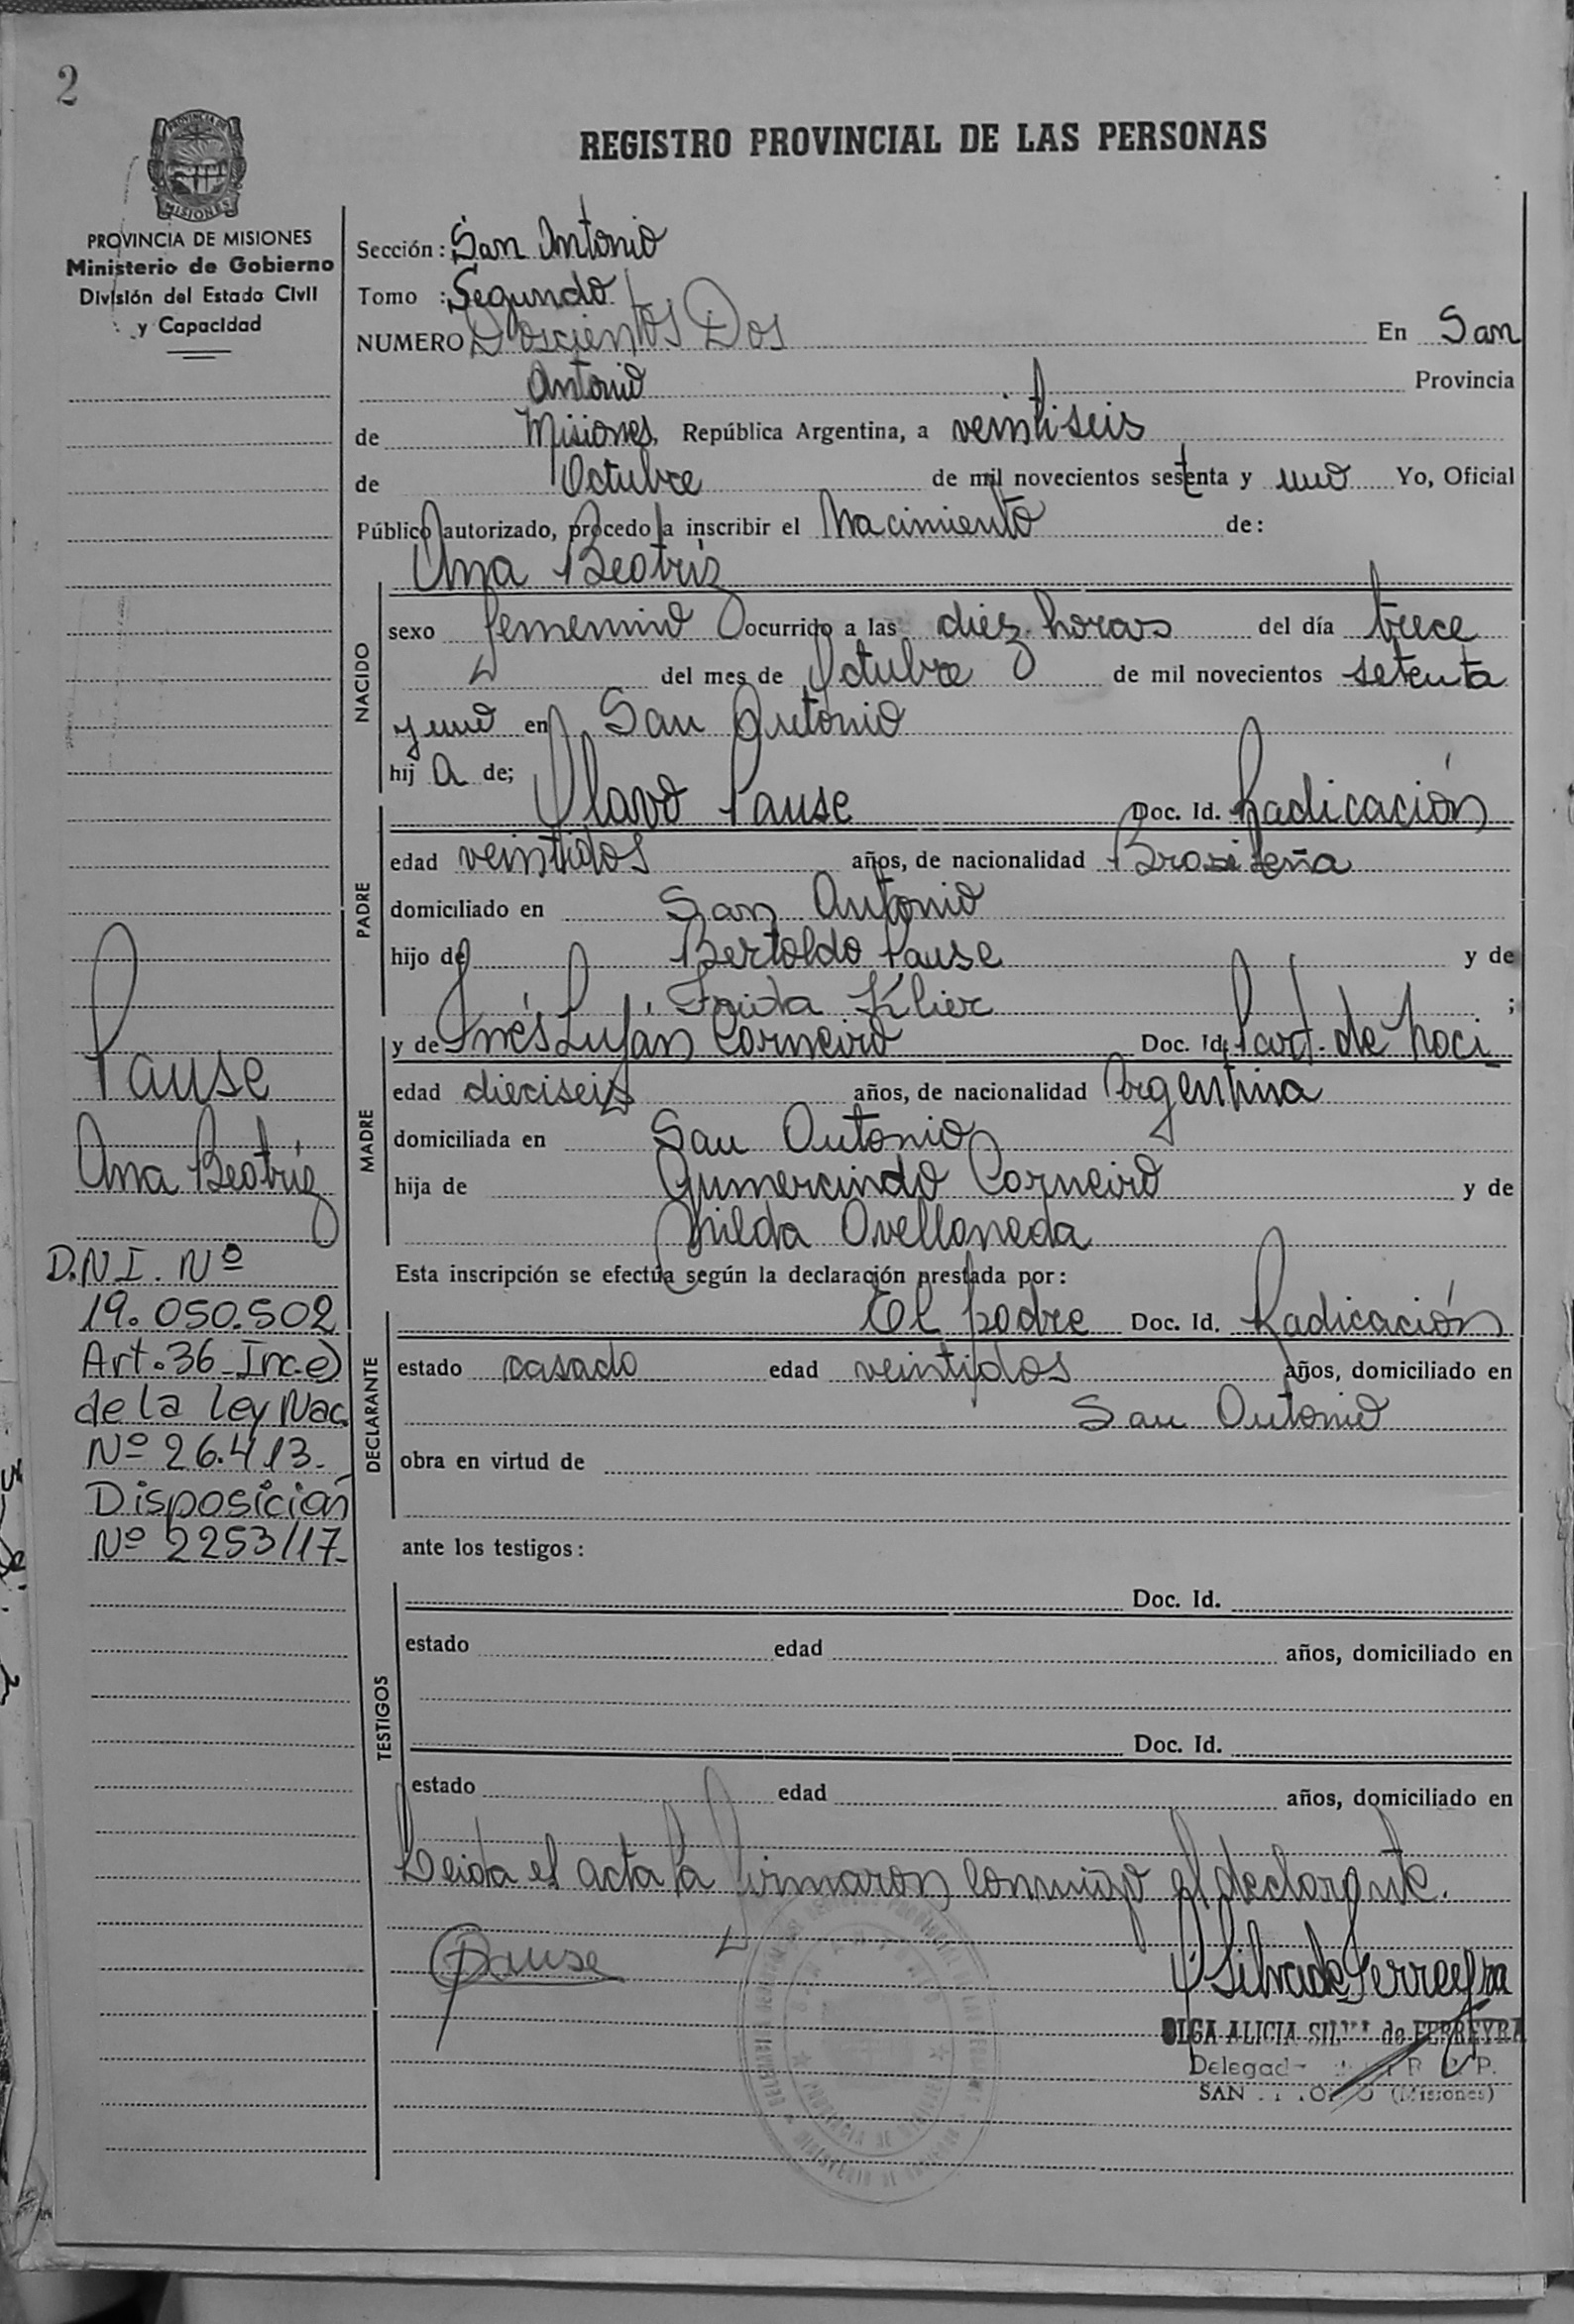 2
REGISTRO PROVINCIAL DE LAS PERSONAS
PROVINCIA DE MISIONES
Ministerio de Gobierno
División del Estado Civil
y Capacidad
Sección: San Antonio
Tomo : Segundo
NUMERO Doscientos Dos En San
Antonio Provincia
de Misiones, República Argentina, a veintiseis
de Octubre de mil novecientos setenta y uno Yo, Oficial
Público autorizado, procedo a inscribir el Nacimiento de:
Ana Beatriz
NACIDO
sexo femenino ocurrido a las diez horas del día trece
del mes de Octubre de mil novecientos setenta
y uno en San Antonio
hij a de; Olavo Pause Doc. Id. Radicación
PADRE
edad veintidos años, de nacionalidad Brasileña
domiciliado en San Antonio
hijo de Bertoldo Pause y de
Frida Klier ;
MADRE
y de Inés Luján Corneiro Doc. Id. Part. de Naci
edad dieciseis años, de nacionalidad Argentina
domiciliada en San Antonio
hija de Gumercindo Corneiro y de
Nilda Avellaneda
Esta inscripción se efectúa según la declaración prestada por:
DECLARANTE
El padre Doc. Id. Radicación
estado casado edad veintidos años, domiciliado en
San Antonio
obra en virtud de
ante los testigos:
TESTIGOS
Doc. Id.
estado edad años, domiciliado en
Doc. Id.
estado edad años, domiciliado en
Leida el acta la firmaron conmigo el declarante.
Pause
OLGA ALICIA SILVA de FERREYRA
SAN (Misiones)
Pause
Ana Beatriz
D.N.I. Nº
19.050.502
Art.36-Inc.e)
de la ley Nac.
Nº 26.413.
Disposición
Nº 2253/17-